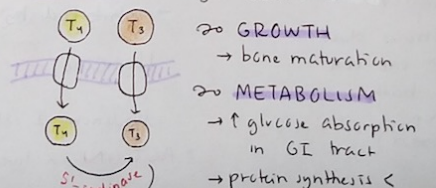 T4 T3
GROWTH
→ bone maturation
METABOLISM
→ ↑ glucose absorption
in GI tract
T4 T3
→ protein synthesis <
5'